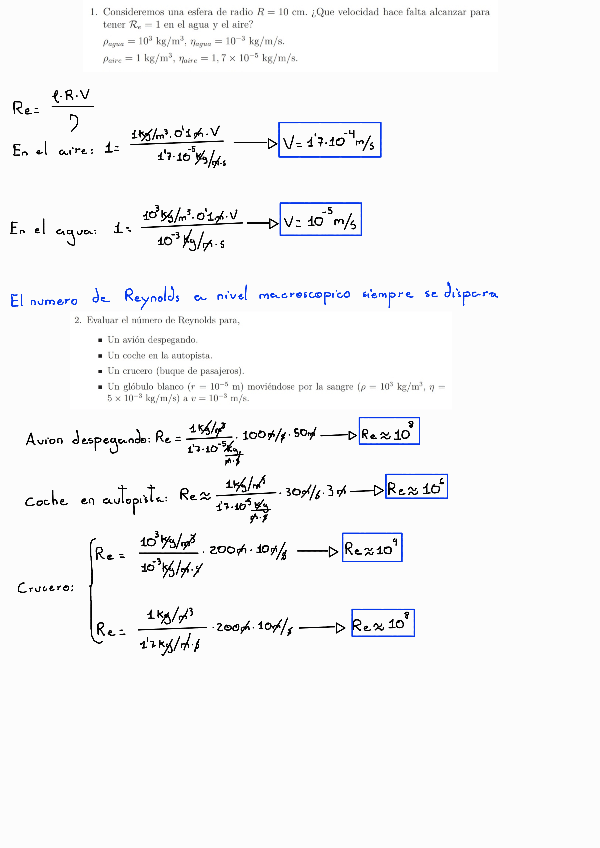 1. Consideremos una esfera de radio R = 10 cm. ¿Que velocidad hace falta alcanzar para
tener Rₑ = 1 en el agua y el aire?
ρagua = 10³ kg/m³, ηagua = 10⁻³ kg/m/s.
ρaire = 1 kg/m³, ηaire = 1,7 × 10⁻⁵ kg/m/s.
Re = ρ·R·V / η
En el aire: 1 = 1kg/m³·0'1m·V / 1'7·10⁻⁵kg/m·s → V = 1'7·10⁻⁴ m/s
En el agua: 1 = 10³kg/m³·0'1m·V / 10⁻³kg/m·s → V = 10⁻⁵ m/s
El numero de Reynolds a nivel macroscopico siempre se dispara
2. Evaluar el número de Reynolds para,
▪ Un avión despegando.
▪ Un coche en la autopista.
▪ Un crucero (buque de pasajeros).
▪ Un glóbulo blanco (r = 10⁻⁵ m) moviéndose por la sangre (ρ = 10³ kg/m³, η =
5 × 10⁻³ kg/m/s) a v = 10⁻³ m/s.
Avion despegando: Re = 1kg/m³ / 1'7·10⁻⁵kg/m·s · 100m/s · 50m → Re ≈ 10⁸
Coche en autopista: Re ≈ 1kg/m³ / 1'7·10⁻⁵kg/m·s · 30m/s · 3m → Re ≈ 10⁶
Crucero:
Re = 10³kg/m³ / 10⁻³kg/m·s · 200m · 10m/s → Re ≈ 10⁹
Re = 1kg/m³ / 1'7kg/m·s · 200m · 10m/s → Re ≈ 10⁸